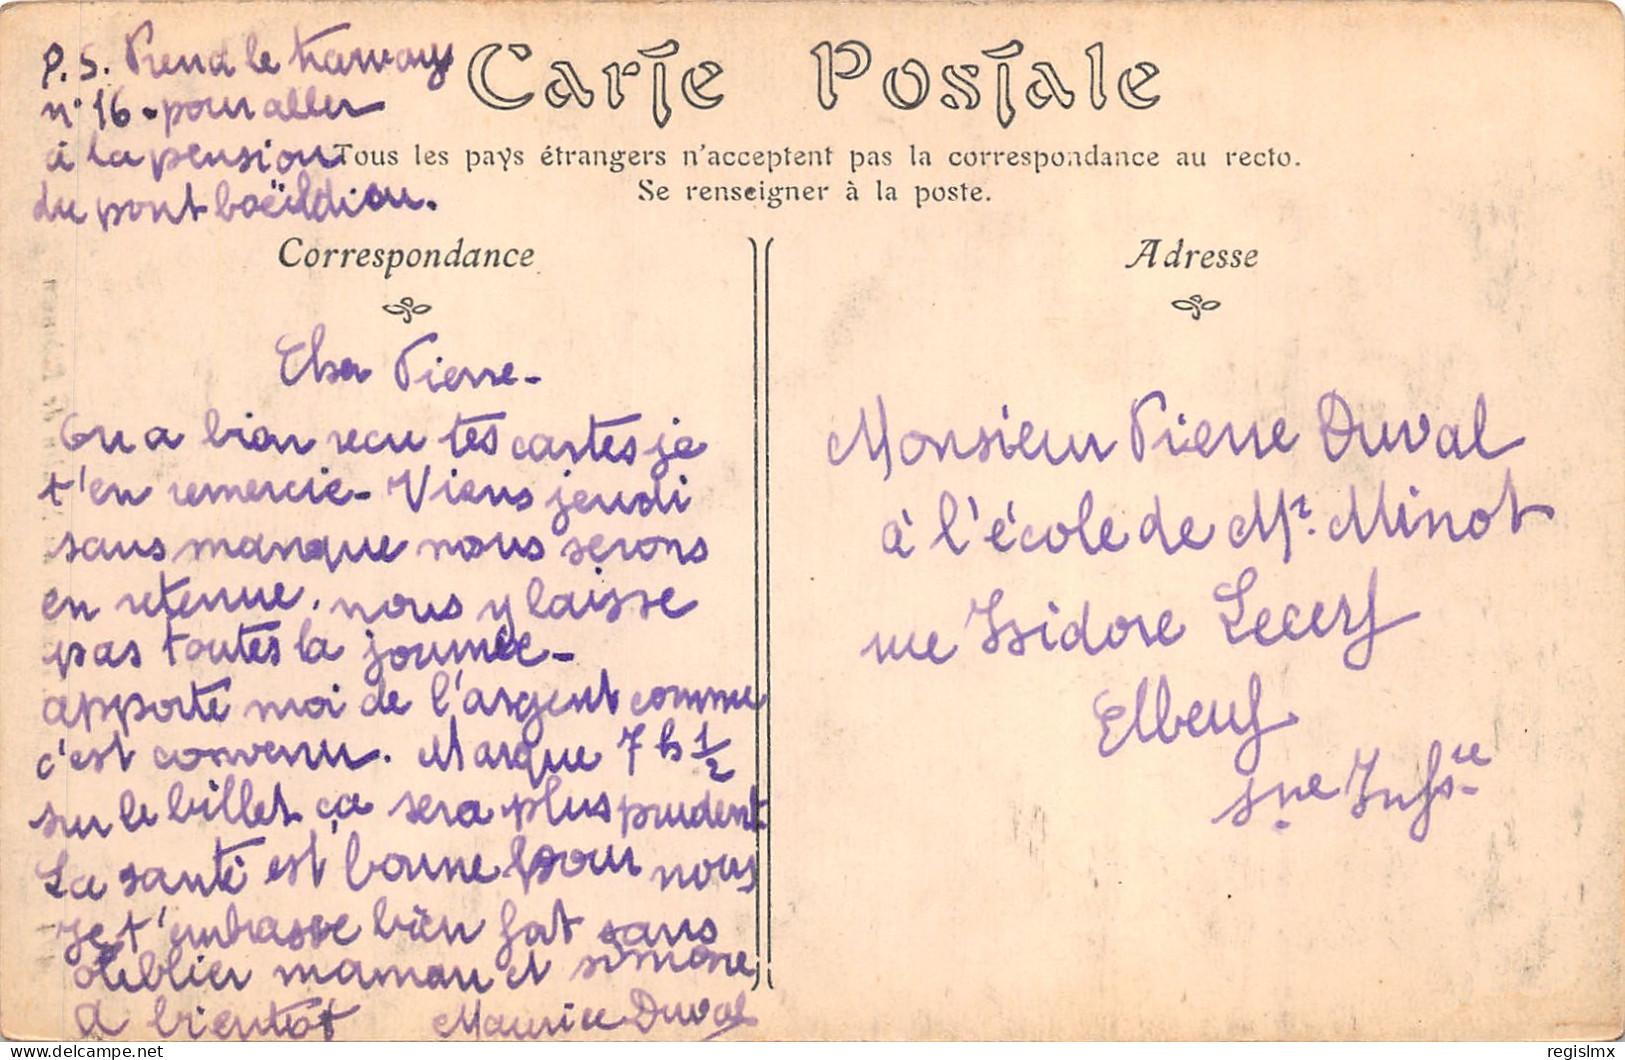 P.S. Prend le tramway
n° 16 - pour aller
à la pension
du pont boëildieu.
Carte Postale
Tous les pays étrangers n'acceptent pas la correspondance au recto.
Se renseigner à la poste.
Correspondance
Cher Pierre -
On a bien recu tes cartes je
t'en remercie - Viens jeudi
sans manque nous serons
en retenue. nous y laisse
pas toutes la journée -
apporte moi de l'argent comme
c'est convenu. Marque 7 h 1/2
sur le billet ça sera plus prudent
La santé est bonne pour nous
Je t'embrasse bien fort sans
oublier maman et simone
A bientot Maurice Duval
Adresse
Monsieur Pierre Duval
à l'école de Mr. Minot
rue Isidore Lecerf
Elbeuf
Sne Infre
regislmx